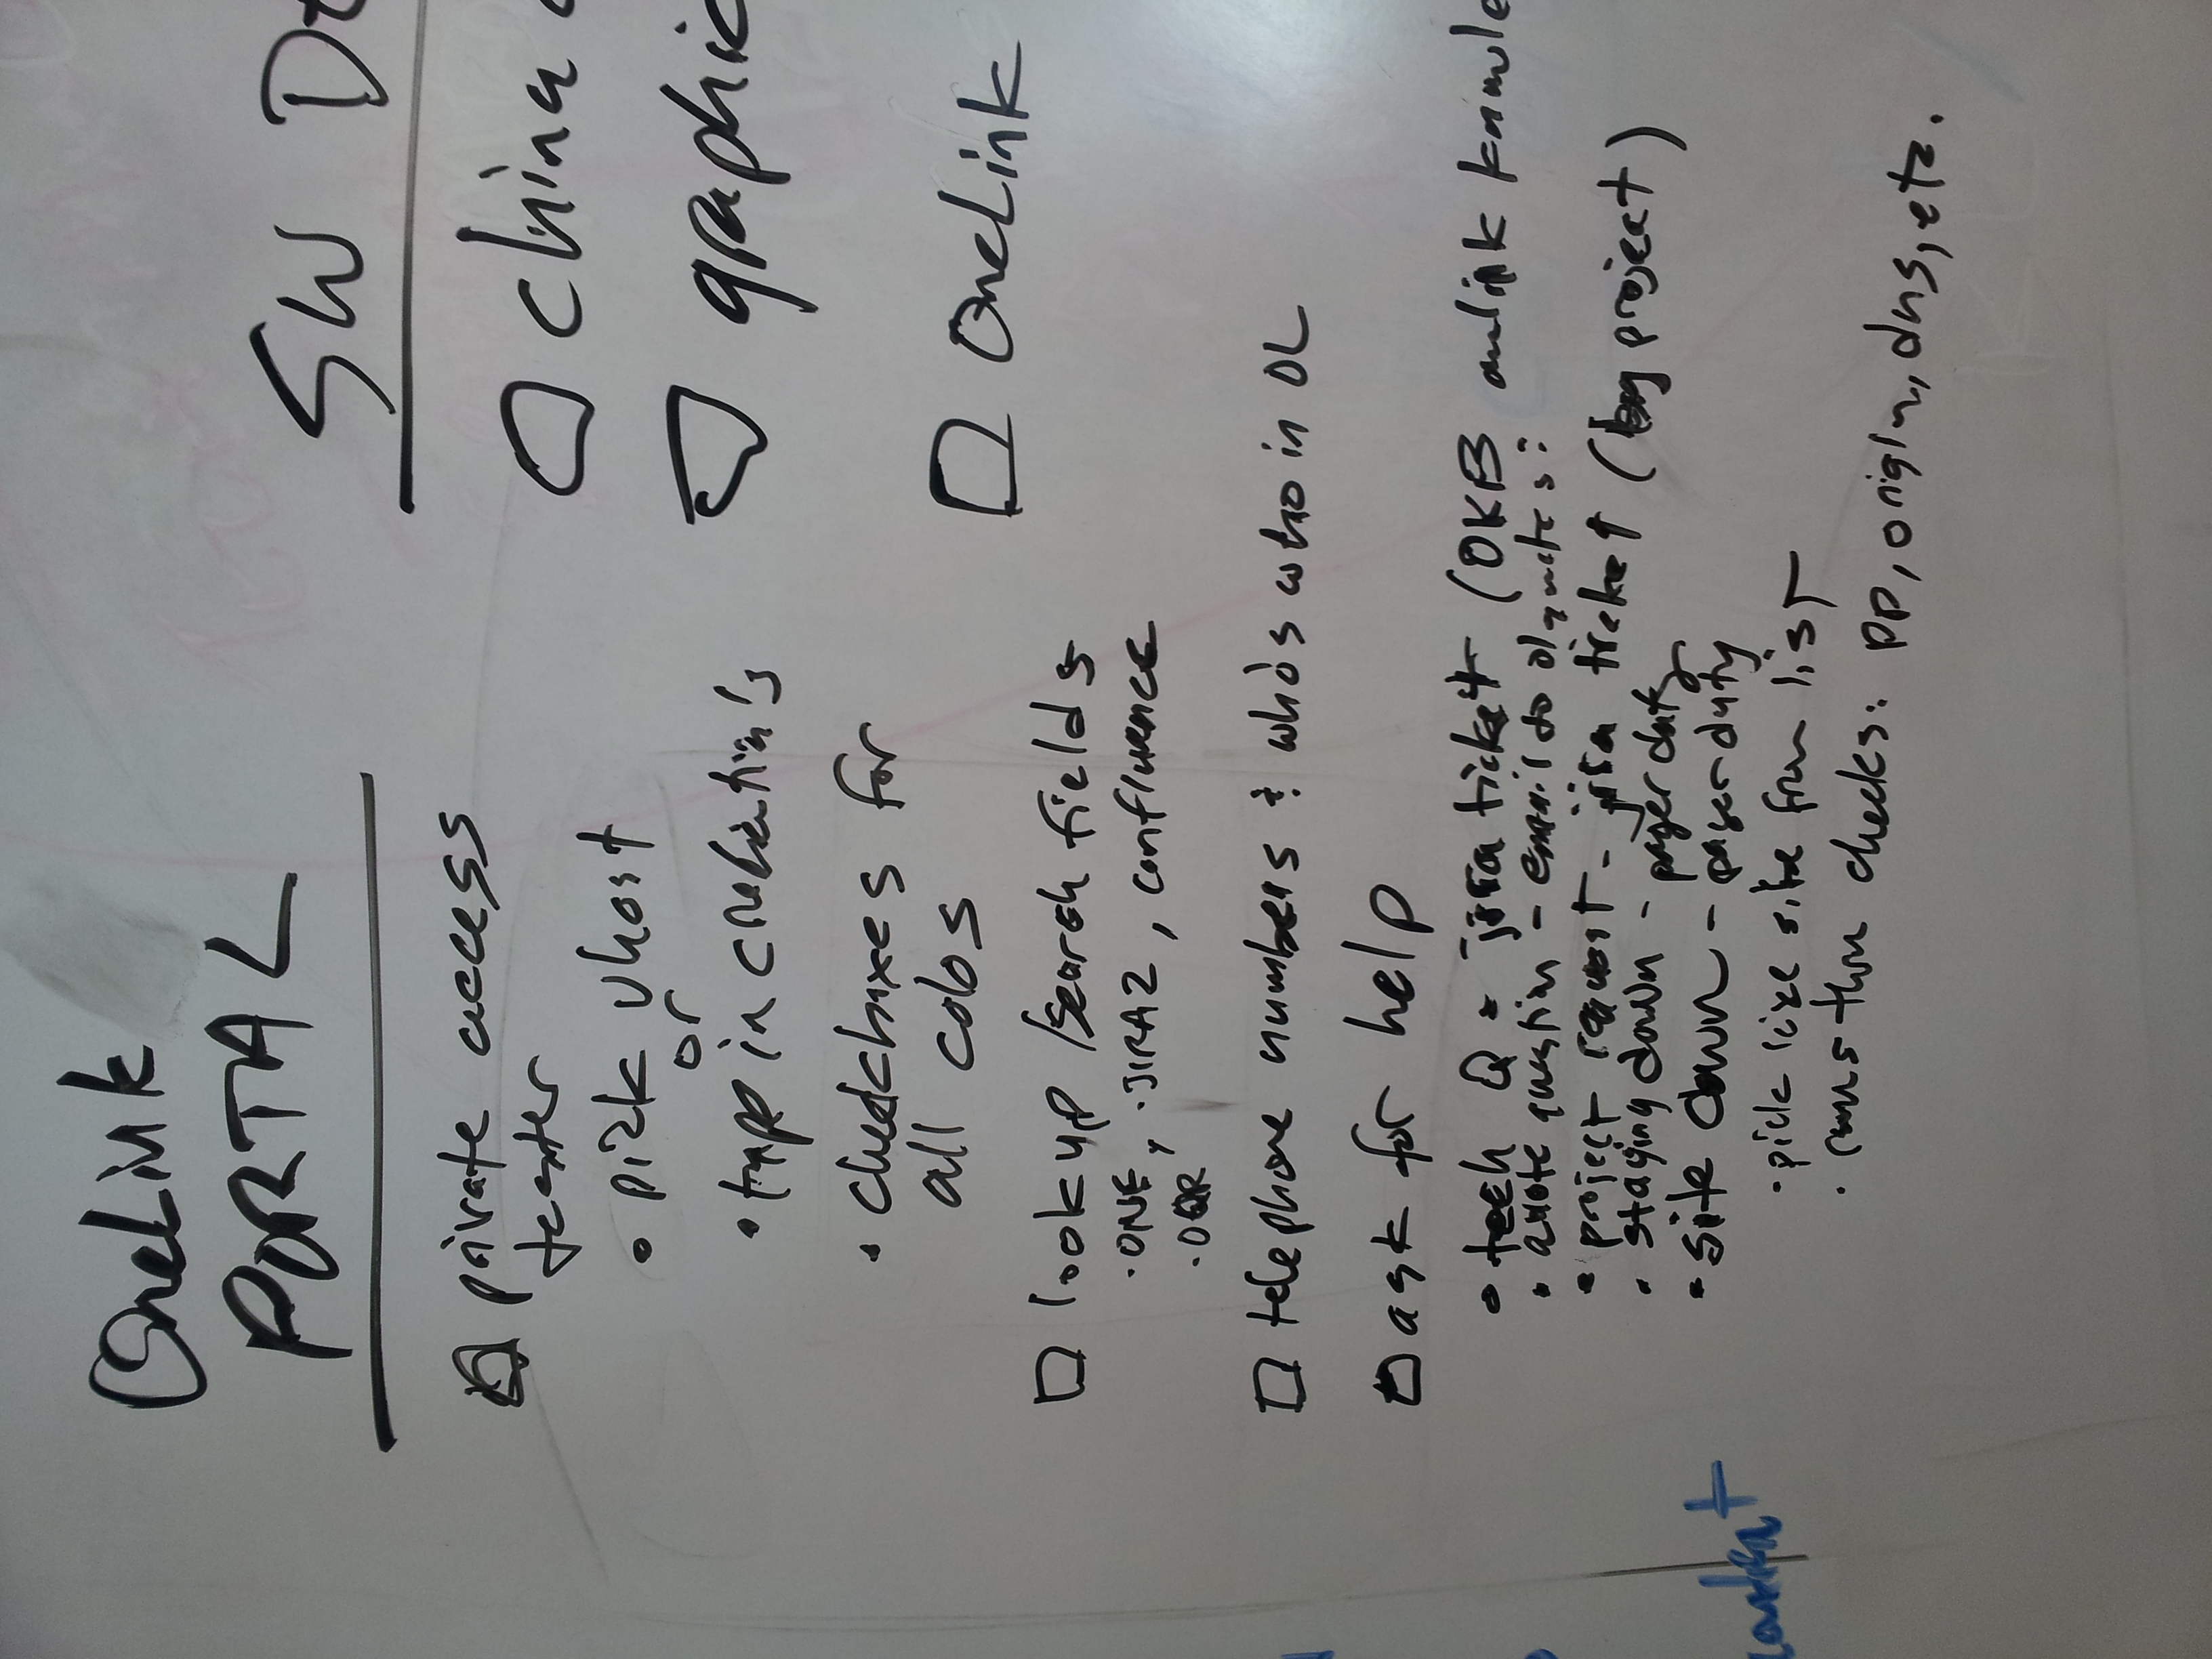 OneLink
PORTAL
private access
tester
• pick vhost
or
• type in
• checkboxes for
all colos
lookup/search fields
• ONE, • JIRA2, confluence
telephone numbers & who's who in OL
ask for help
• tech Q - jira ticket (OKB
• quote question - email to
• project request - jira ticket (by project)
• staging down - pagerduty
• site down - pagerduty
• pick live site from list
• runs then checks: PP, origin, dns, etc.
SW
china
graphic
OneLink